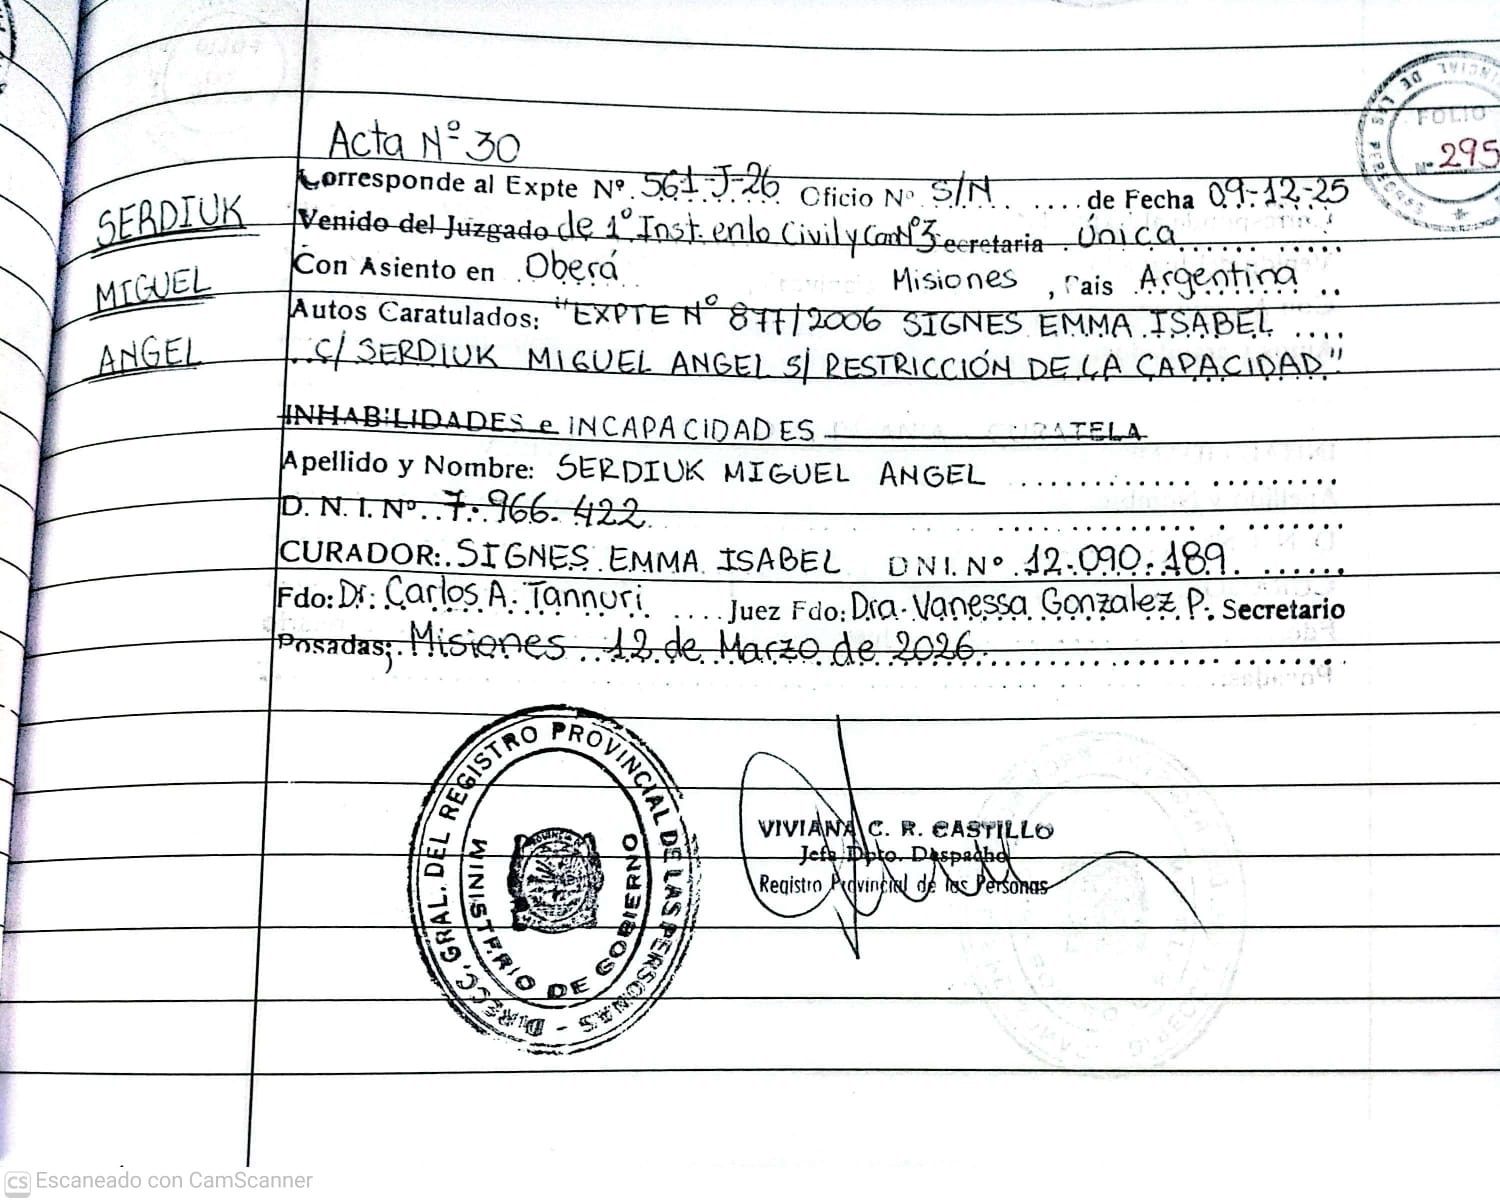 FOLIO
Nº 295
Acta Nº 30
SERDIUK
MIGUEL
ANGEL
Corresponde al Expte Nº. 561-J-26 Oficio Nº S/N. .... de Fecha 09-12-25
Venido del Juzgado de 1º Inst. en lo Civil y Com Nº3 ecretaria . Única
Con Asiento en Oberá Misiones , Pais Argentina ..
Autos Caratulados: "EXPTE Nº 877/2006 SIGNES EMMA ISABEL ....
C/ SERDIUK MIGUEL ANGEL S/ RESTRICCIÓN DE LA CAPACIDAD"
INHABILIDADES e INCAPACIDADES CURATELA
Apellido y Nombre: SERDIUK MIGUEL ANGEL
D. N. I. Nº. 7.966.422
CURADOR: SIGNES EMMA ISABEL DNI. Nº 12.090.189.
Fdo: Dr. Carlos A. Tannuri .... Juez Fdo: Dra. Vanessa Gonzalez P. Secretario
Posadas; Misiones 12 de Marzo de 2026.
DIRECC. GRAL. DEL REGISTRO PROVINCIAL DE LAS PERSONAS -
MINISTERIO DE GOBIERNO
VIVIANA C. R. CASTILLO
Jefe Dpto. Despacho
Registro Provincial de las Personas
CS Escaneado con CamScanner